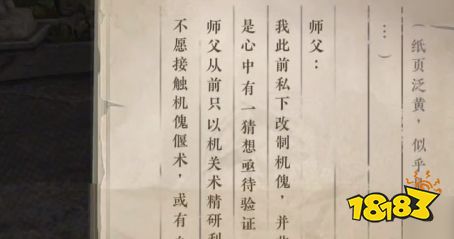 （纸页泛黄，似乎
…）
师父：
我此前私下改制机傀，并
是心中有一猜想亟待验证
师父从前只以机关术精研
不愿接触机傀偃术，或有
18183